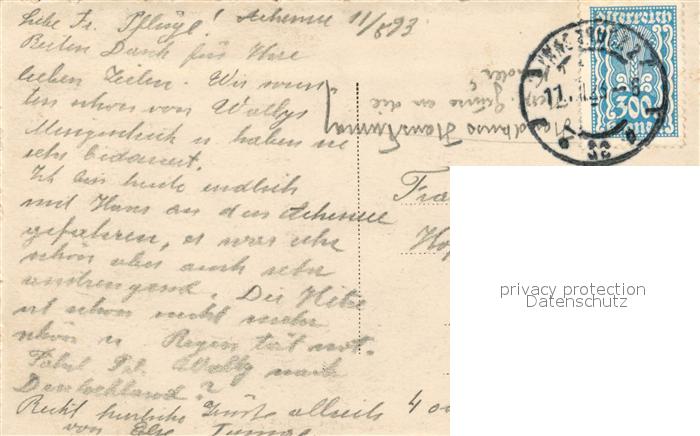 Liebe Fr. Pflügl! Achensee 11/8 93
Besten Dank für Ihre
lieben Zeilen. Wir wuss-
ten schon von Wallys
u haben sie
sehr bedauert.
Ich bin heute endlich
mit Hans an den Achensee
gefahren, es war sehr
schön aber auch sehr
anstrengend. Die Hitze
ist schon nicht mehr
schön u Regen tät not.
Fährt Frl. Wally nach
Deutschland?
Recht herzliche Grüße allseits
von Else
Handkuss Hans
an die
Österreich
300
INNSBRUCK 2
Fra
Ho
privacy protection
Datenschutz